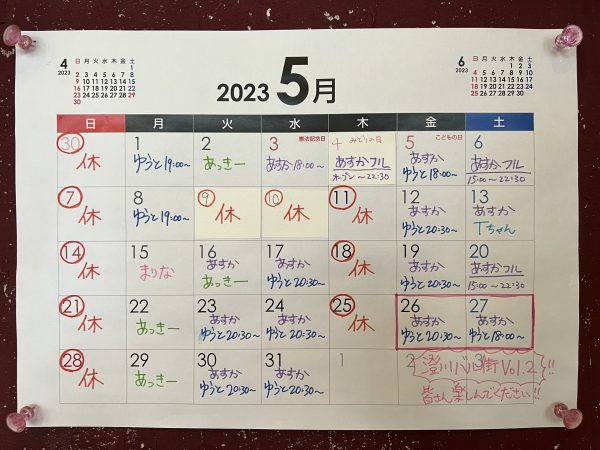 4
2023
日 月 火 水 木 金 土
1
2 3 4 5 6 7 8
9 10 11 12 13 14 15
16 17 18 19 20 21 22
23 24 25 26 27 28 29
30
2023 5月
6
2023
日 月 火 水 木 金 土
1 2 3
4 5 6 7 8 9 10
11 12 13 14 15 16 17
18 19 20 21 22 23 24
25 26 27 28 29 30
日 月 火 水 木 金 土
30 休
1 ゆうと19:00〜
2 あっきー
3 憲法記念日
あすか18:00〜
4 みどりの日
あすかフル
オープン〜22:30
5 こどもの日
あすか
ゆうと18:00〜
6
あすかフル
15:00〜22:30
7 休
8 ゆうと19:00〜
9 休
10 休
11 休
12 あすか
ゆうと20:30〜
13 あすか
Tちゃん
14 休
15 まりな
16 あすか
あっきー
17 あすか
ゆうと20:30〜
18 休
19 あすか
ゆうと20:30〜
20 あすかフル
15:00〜22:30
21 休
22 あっきー
23 あすか
ゆうと20:30〜
24 あすか
ゆうと20:30〜
25 休
26 あすか
ゆうと20:30〜
27 あすか
ゆうと18:00〜
28 休
29 あっきー
30 あすか
ゆうと20:30〜
31 あすか
ゆうと20:30〜
1
2 3
澄川バル街Vol.2!!
皆さん楽しんでください!!